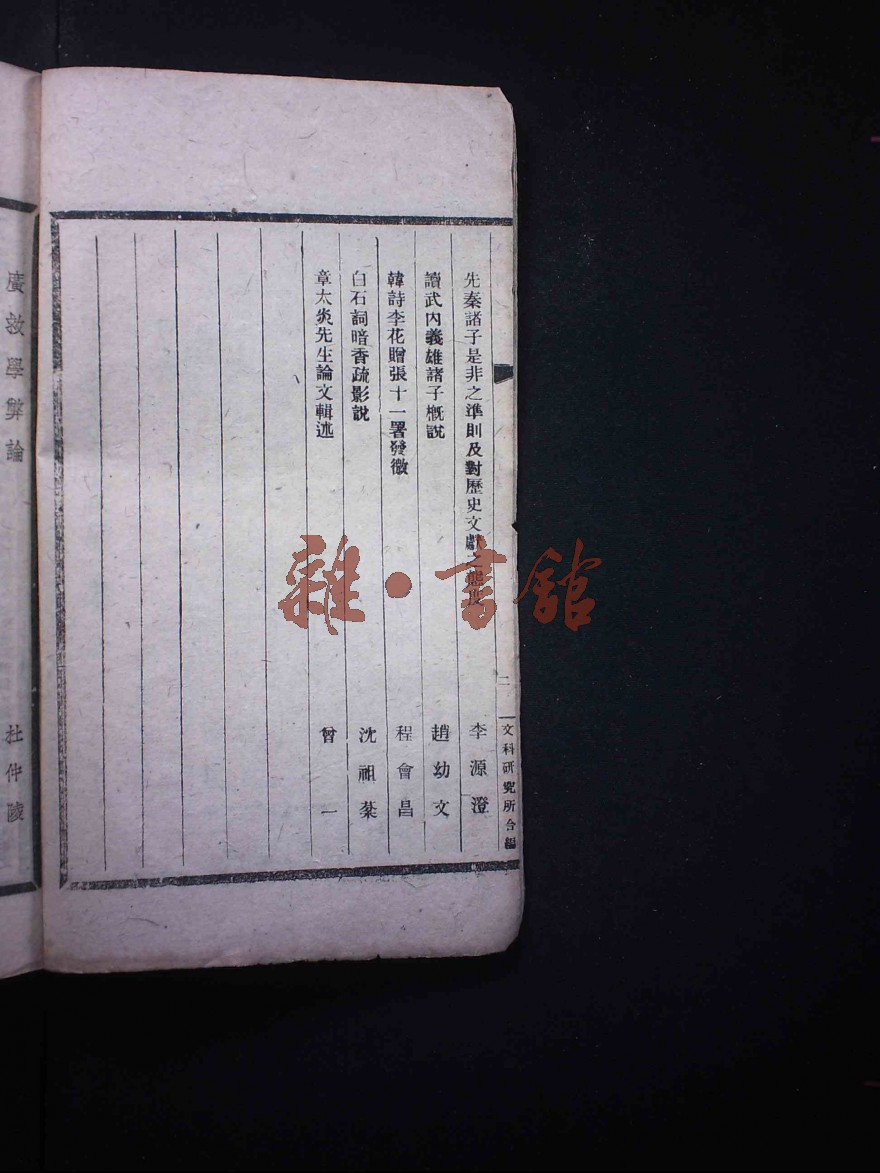 二
文科研究所合編
先秦諸子是非之準則及對歷史文獻之態度 李源澄
讀武內義雄諸子概說 趙幼文
韓詩李花贈張十一署發微 程會昌
白石詞暗香疏影說 沈祖棻
章太炎先生論文輯述 曾一
廣救學弊論 杜仲陵
雜·書館